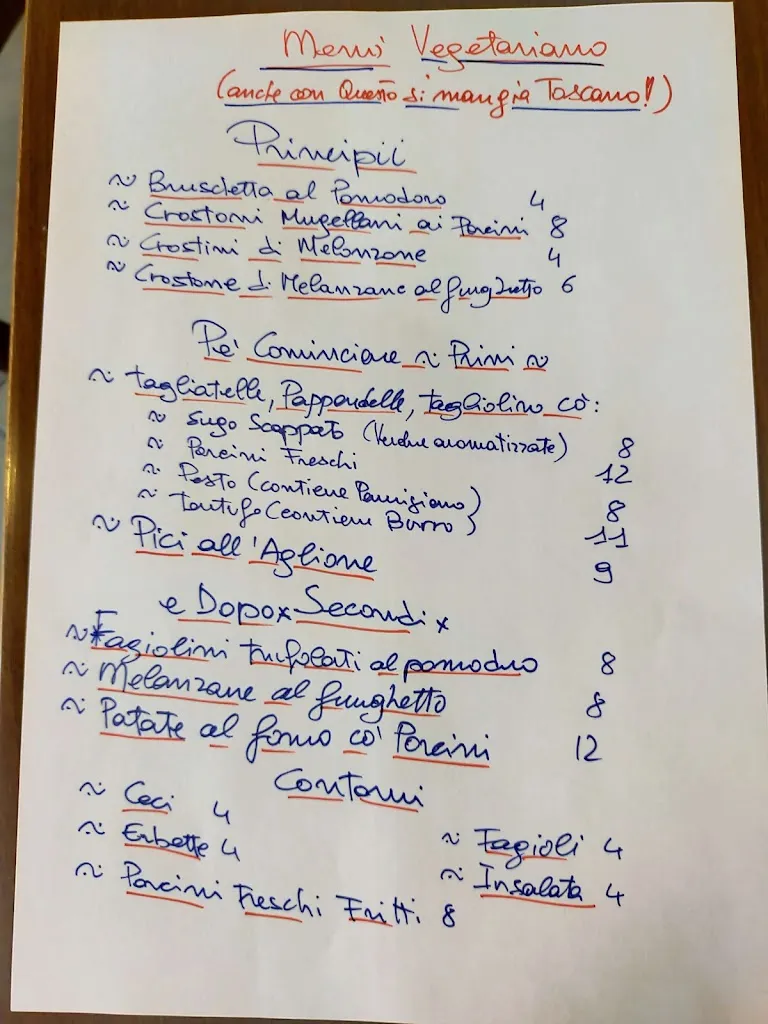 Menù Vegetariano
(anche con Questo si mangia Toscano!)
Principii
~ Bruscietta al Pomodoro 4
~ Crostoni Mugellani ai Porcini 8
~ Crostini di Melanzane 4
~ Crostone di Melanzane al funghetto 6
Pe' Cominciare ~ Primi ~
~ tagliatelle, Pappardelle, tagliolino co':
~ Sugo Scappato (Verdure aromatizzate) 8
~ Porcini Freschi 12
~ Pesto (contiene Parmigiano) 8
~ Tartufo (contiene Burro) 11
~ Pici all'Aglione 9
e Dopo x Secondi x
~ *Fagiolini trifolati al pomodoro 8
~ Melanzane al funghetto 8
~ Patate al forno co' Porcini 12
Contorni
~ Ceci 4
~ Erbette 4
~ Fagioli 4
~ Insalata 4
~ Porcini Freschi Fritti 8